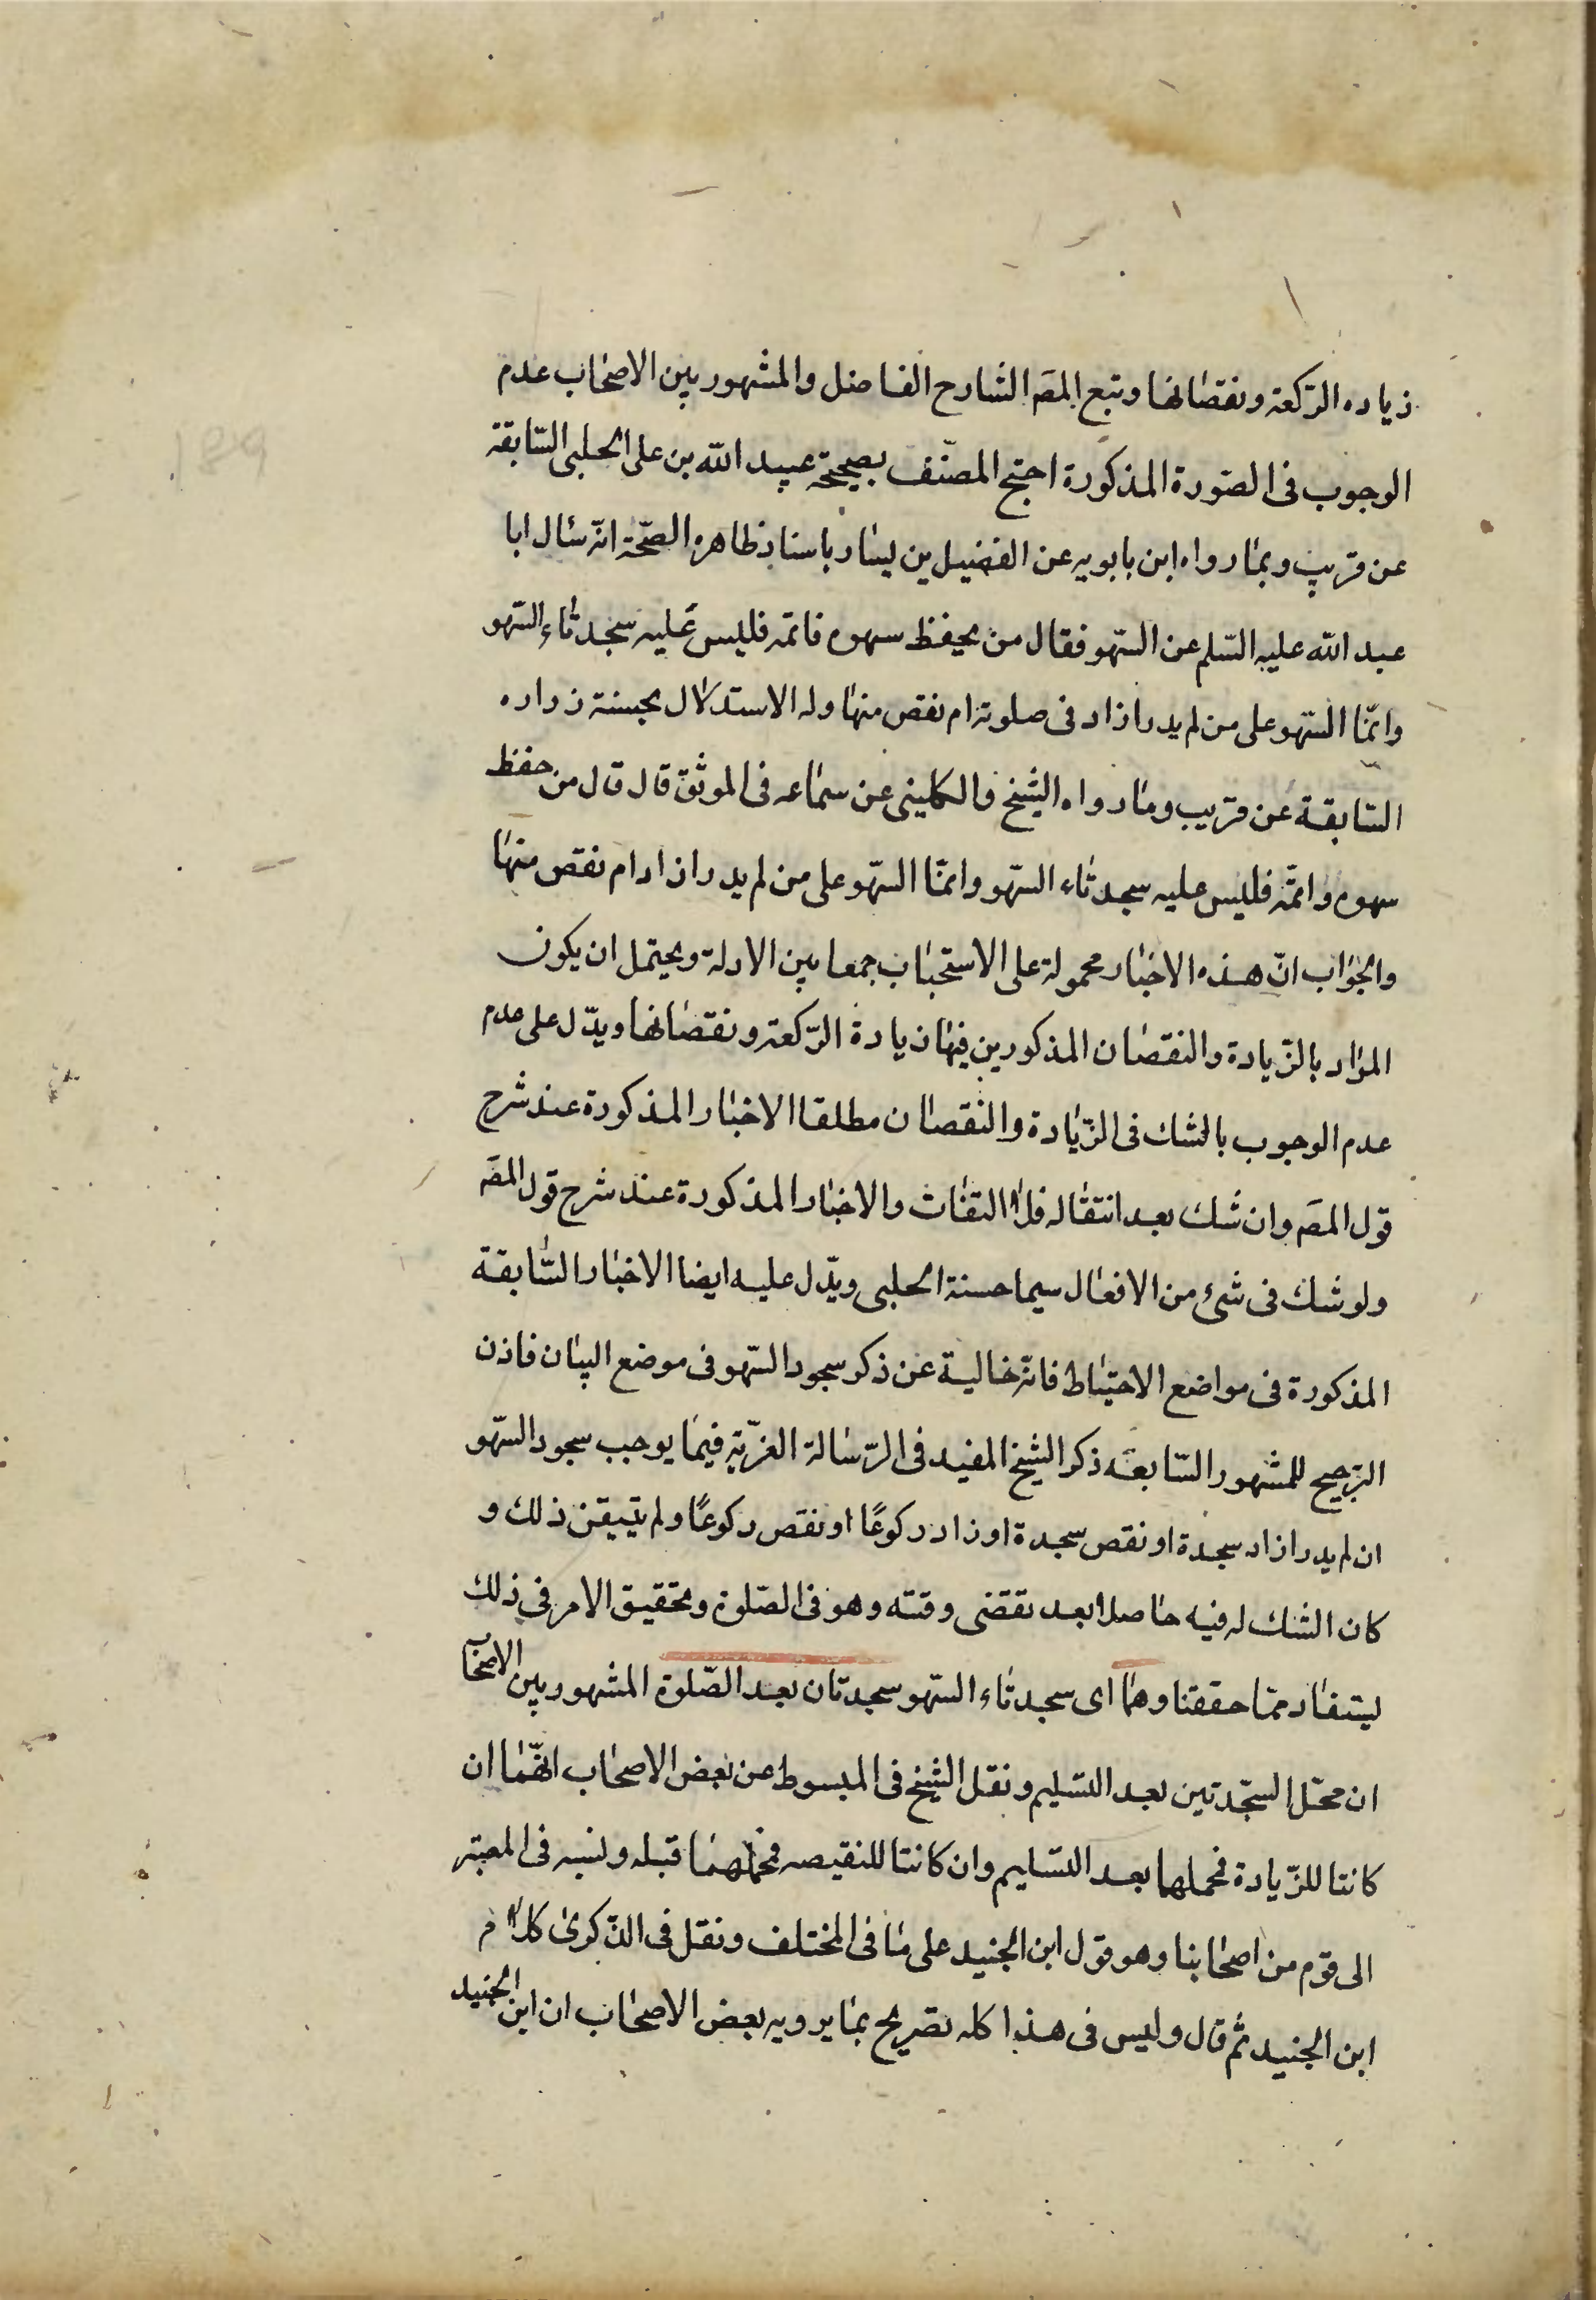 زياده الرّكعة ونقصانها وتبع المصَ الشارح الفاضل والمشهور بين الاصحاب عدم
الوجوب فى الصّورة المذكورة احتج المصنّف بصحيحة عبيد الله بن على الحلبى السّابقة
عن قريب وبما رواه ابن بابويه عن الفضيل بن يسار باسناد ظاهره الصّحّة انّه سئال ابا
عبد الله عليه السّلم عن السّهو فقال من يحفظ سهوه فاتمّه فليس عليه سجدتاء السّهو
وانمّا السّهو على من لم يدر ازاد فى صلوته ام نقص منها وله الاستدلال بحسنة زراره
السّابقة عن قريب وما رواه الشيخ والكلينى عن سماعه فى الموثّق قال قال من حفظ
سهوه واتمّه فليس عليه سجدتاء السّهو وانمّا السّهو على من لم يدر ازاد ام نقص منها
والجواب انّ هذه الاخبار محمولة على الاستحباب جمعا بين الادلة ويحتمل ان يكون
المراد بالزّيادة والنقصان المذكورين فيها زيادة الرّكعة ونقصانها ويدّل على عدم
عدم الوجوب بالشك فى الزّيادة والنّقصان مطلقا الاخبار المذكورة عند شرح
قول المصَ وان شك بعد انتقاله فلا التفات والاخبار المذكورة عند شرح قول المصَ
ولو شك فى شئ من الافعال سيما حسنة الحلبى ويدّل عليه ايضا الاخبار السّابقة
المذكورة فى مواضع الاحتياط فانّه خالية عن ذكر سجود السّهو فى موضع البيان فاذن
الترجيح للمشهور السّابعه ذكر الشيخ المفيد فى الرّسالة الغرّية فيما يوجب سجود السّهو
ان لم يدر ازاد سجدة او نقص سجدة او زاد ركوعًا او نقص ركوعًا ولم يتيقن ذلك و
كان الشك له فيه حاصلا بعد تقضى وقته وهو فى الصّلوة وتحقيق الامر فى ذلك
يستفاد ممّا حققنا وهما اى سجدتاء السّهو سجدتان بعد الصّلوة المشهور بين الاصحاب
ان محّل السجّدتين بعد التسّليم ونقل الشيخ فى المبسوط عن بعض الاصحاب انهّما ان
كانتا للزّيادة فمحلهما بعد التسّليم وان كانتا للنقيصه فمحلهما قبله ونسبه فى المعتبر
الى قوم من اصحابنا وهو قول ابن الجنيد على ما فى المختلف ونقل فى الذّكرى كلام
ابن الجنيد ثم قال وليس فى هذا كله تصريح بما يرويه بعض الاصحاب ان ابن الجنيد